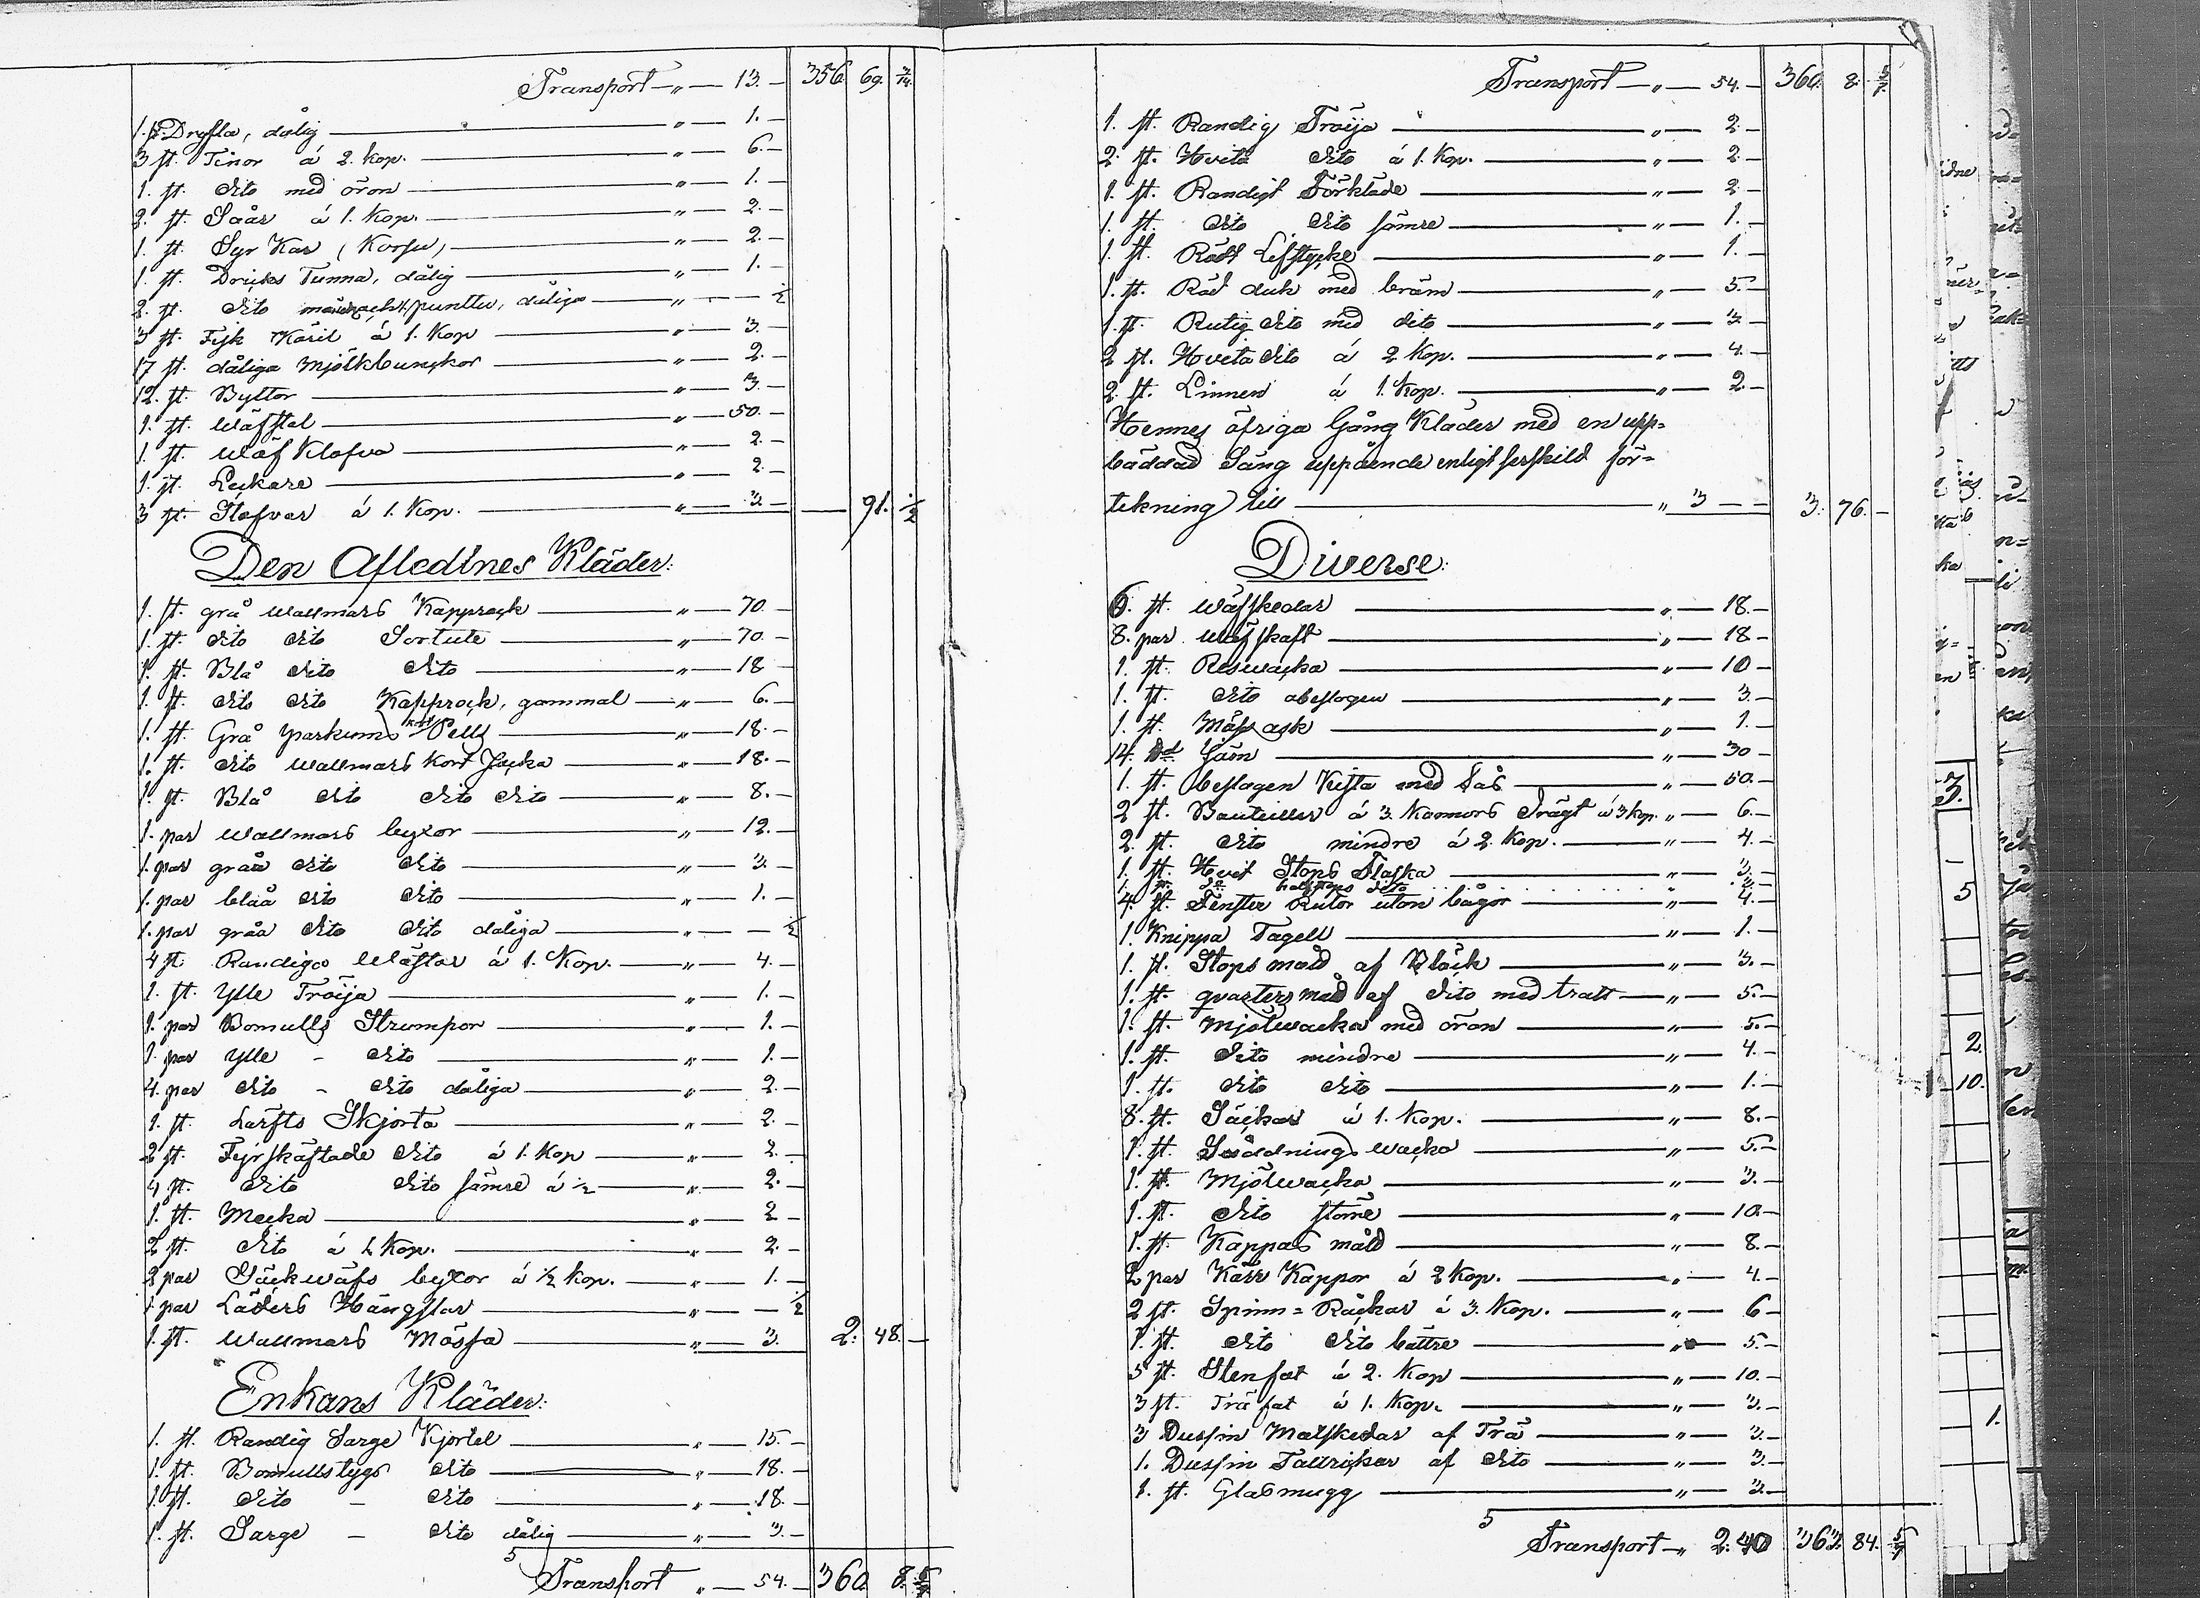 Transport — " — 13. — 356. 69. 3/14.
1. st. Drysla, dålig — " — 1. —
3 st. Tinor á 2. kop. — " — 6. —
1. st. dito med öron — " — 1. —
2. st. Såår á 1. Kop. — " — 2. —
1. st. Syr Kar (Korsu) — " — 2. —
1. st. Dricks Tunna, dålig — " — 1. —
2. st. dito punttu, dåliga — " — — 1/2
3 st. Fisk Käril á 1. Kop — " — 3. —
17 st. dåliga Mjölkbunckor — " — 2. —
12. st. Byttor — " — 3. —
1. st. Wäfstol — " — 50. —
1. st. Wäf Klofva — " — 2. —
1. st. Leckare — " — 2. —
3 st. Stäfvor á 1. Kop. — " — 3. — — 91. 1/2
Den Aflednes Kläder:
1. st. grå Wallmars Kapprock — " — 70. —
1. st. dito dito Sortute — " — 70. —
1. st. Blå dito dito — " — 18 —
1. st. dito dito Kapprock, gammal — " — 6. —
1. st. Grå parkums kort Pells — " — 18. —
1. st. dito Wallmars Kort Jacka — " — 18. —
1. st. Blå dito dito dito — " — 8. —
1. par Wallmars byxor — " — 12. —
1. par gråa dito dito — " — 3. —
1. par blåa dito dito — " — 1. —
1. par gråa dito dito dåliga — " — — 1/2
4 st. Randiga Wästar á 1. Kop. — " — 4. —
1. st. Ylle Tröija — " — 1. —
1. par Bomulls Strumpor — " — 1. —
1. par Ylle - dito — " — 1. —
4. par dito - dito dåliga — " — 2. —
1. st. Lärfts Skjorta — " — 2. —
2 st. Fyrskäftade dito á 1. Kop — " — 2. —
4 st. dito dito sämre á 1/2 — " — 2. —
1. st. Mecka — " — 2 —
2 st. dito á 1. Kop. — " — 2. —
2 par Säckwäfs byxor á 1/2 kop. — " — 1. —
1. par Läders Hängslar — " — — 1/2
1. st. Wallmars Mössa — " — 3. 2. 48. —
Enkans Kläder:
1. st. Randig Sarge Kjortel — " — 15. —
1. st. Bomullstygs dito — " — 18. —
1. st. dito - dito — " — 18. —
1. st. Sarge - dito dålig — " — 3. —
Transport " — 54. — 360. 8. 5/7
Transport — " — 54. — 360. 8. 5/7.
1. st. Randig Tröija — " — 2. —
2. st. Hvita dito á 1. Kop. — " — 2. —
1. st. Randigt Förkläde — " — 2 —
1. st. dito dito sämre — " — 1. —
1. st. Rödt Lifstycke — " — 1. —
1. st. Röd duk med bräm — " — 5. —
1. st. Rutig dito med dito — " — 3 —
2 st. Hvita dito á 2 Kop. — " — 4. —
2. st. Linnen á 1. Kop. — " — 2. —
Hennes öfriga Gång Kläder med en upp=
bäddad Säng uppående enligt serskild för=
tekning till — " 3 — — 3. 76. —
Diverse:
6. st. Wäfskedar — " — 18. —
8. par Wäfskaft — " — 18 —
1. st. Reswacka — " — 10 —
1. st. dito obeslagen — " — 3. —
1. st. Mäss ask — " — 1. —
14. ℔ Järn — " — 30 —
1. st. beslagen Kista med Lås — " — 50. —
2 st. Bouteiller á 3. Kannors drägt á 3 kop. " — 6. —
2 st. dito mindre á 2. Kop. — " — 4. —
1. st. Hvit Stops Flaska — " — 3. —
1. st. do halfstops dito " 2. —
4. st. Fenster Rutor utan bågor — " — 4. —
1. Knippa Tagell — " — 1. —
1. st. Stops mått af Bläck — " — 3. —
1. st. qvarters mått af dito med tratt — " — 5. —
1. st. Mjölwacka med öron — " — 5. —
1. st. dito mindre — " — 4. —
1. st. dito dito — " — 1. —
8. st. Säckar á 1. Kop. — " — 8. —
1. st. wacka — " — 5. —
1. st. Mjölwacka — " — 3. —
1. st. dito större — " — 10. —
1. st. Kappas mått — " — 8. —
2 par Kärr Kappor á 2 Kop. — " — 4. —
2 st. Spinn=Råckar á 3. Kop. — " — 6 —
1. st. dito dito bättre — " — 5. —
5 st. Stenfat á 2. Kop — " — 10. —
3 st. Trä fat á 1. Kop. — " — 3. —
3 Dussin Matskedar af Trä — " — 3. —
1. Dussin Tallrickar af dito — " — 3. —
1. st. Glasmugg — " — 3. —
Transport — " 2. 40 363. 84. 5/7